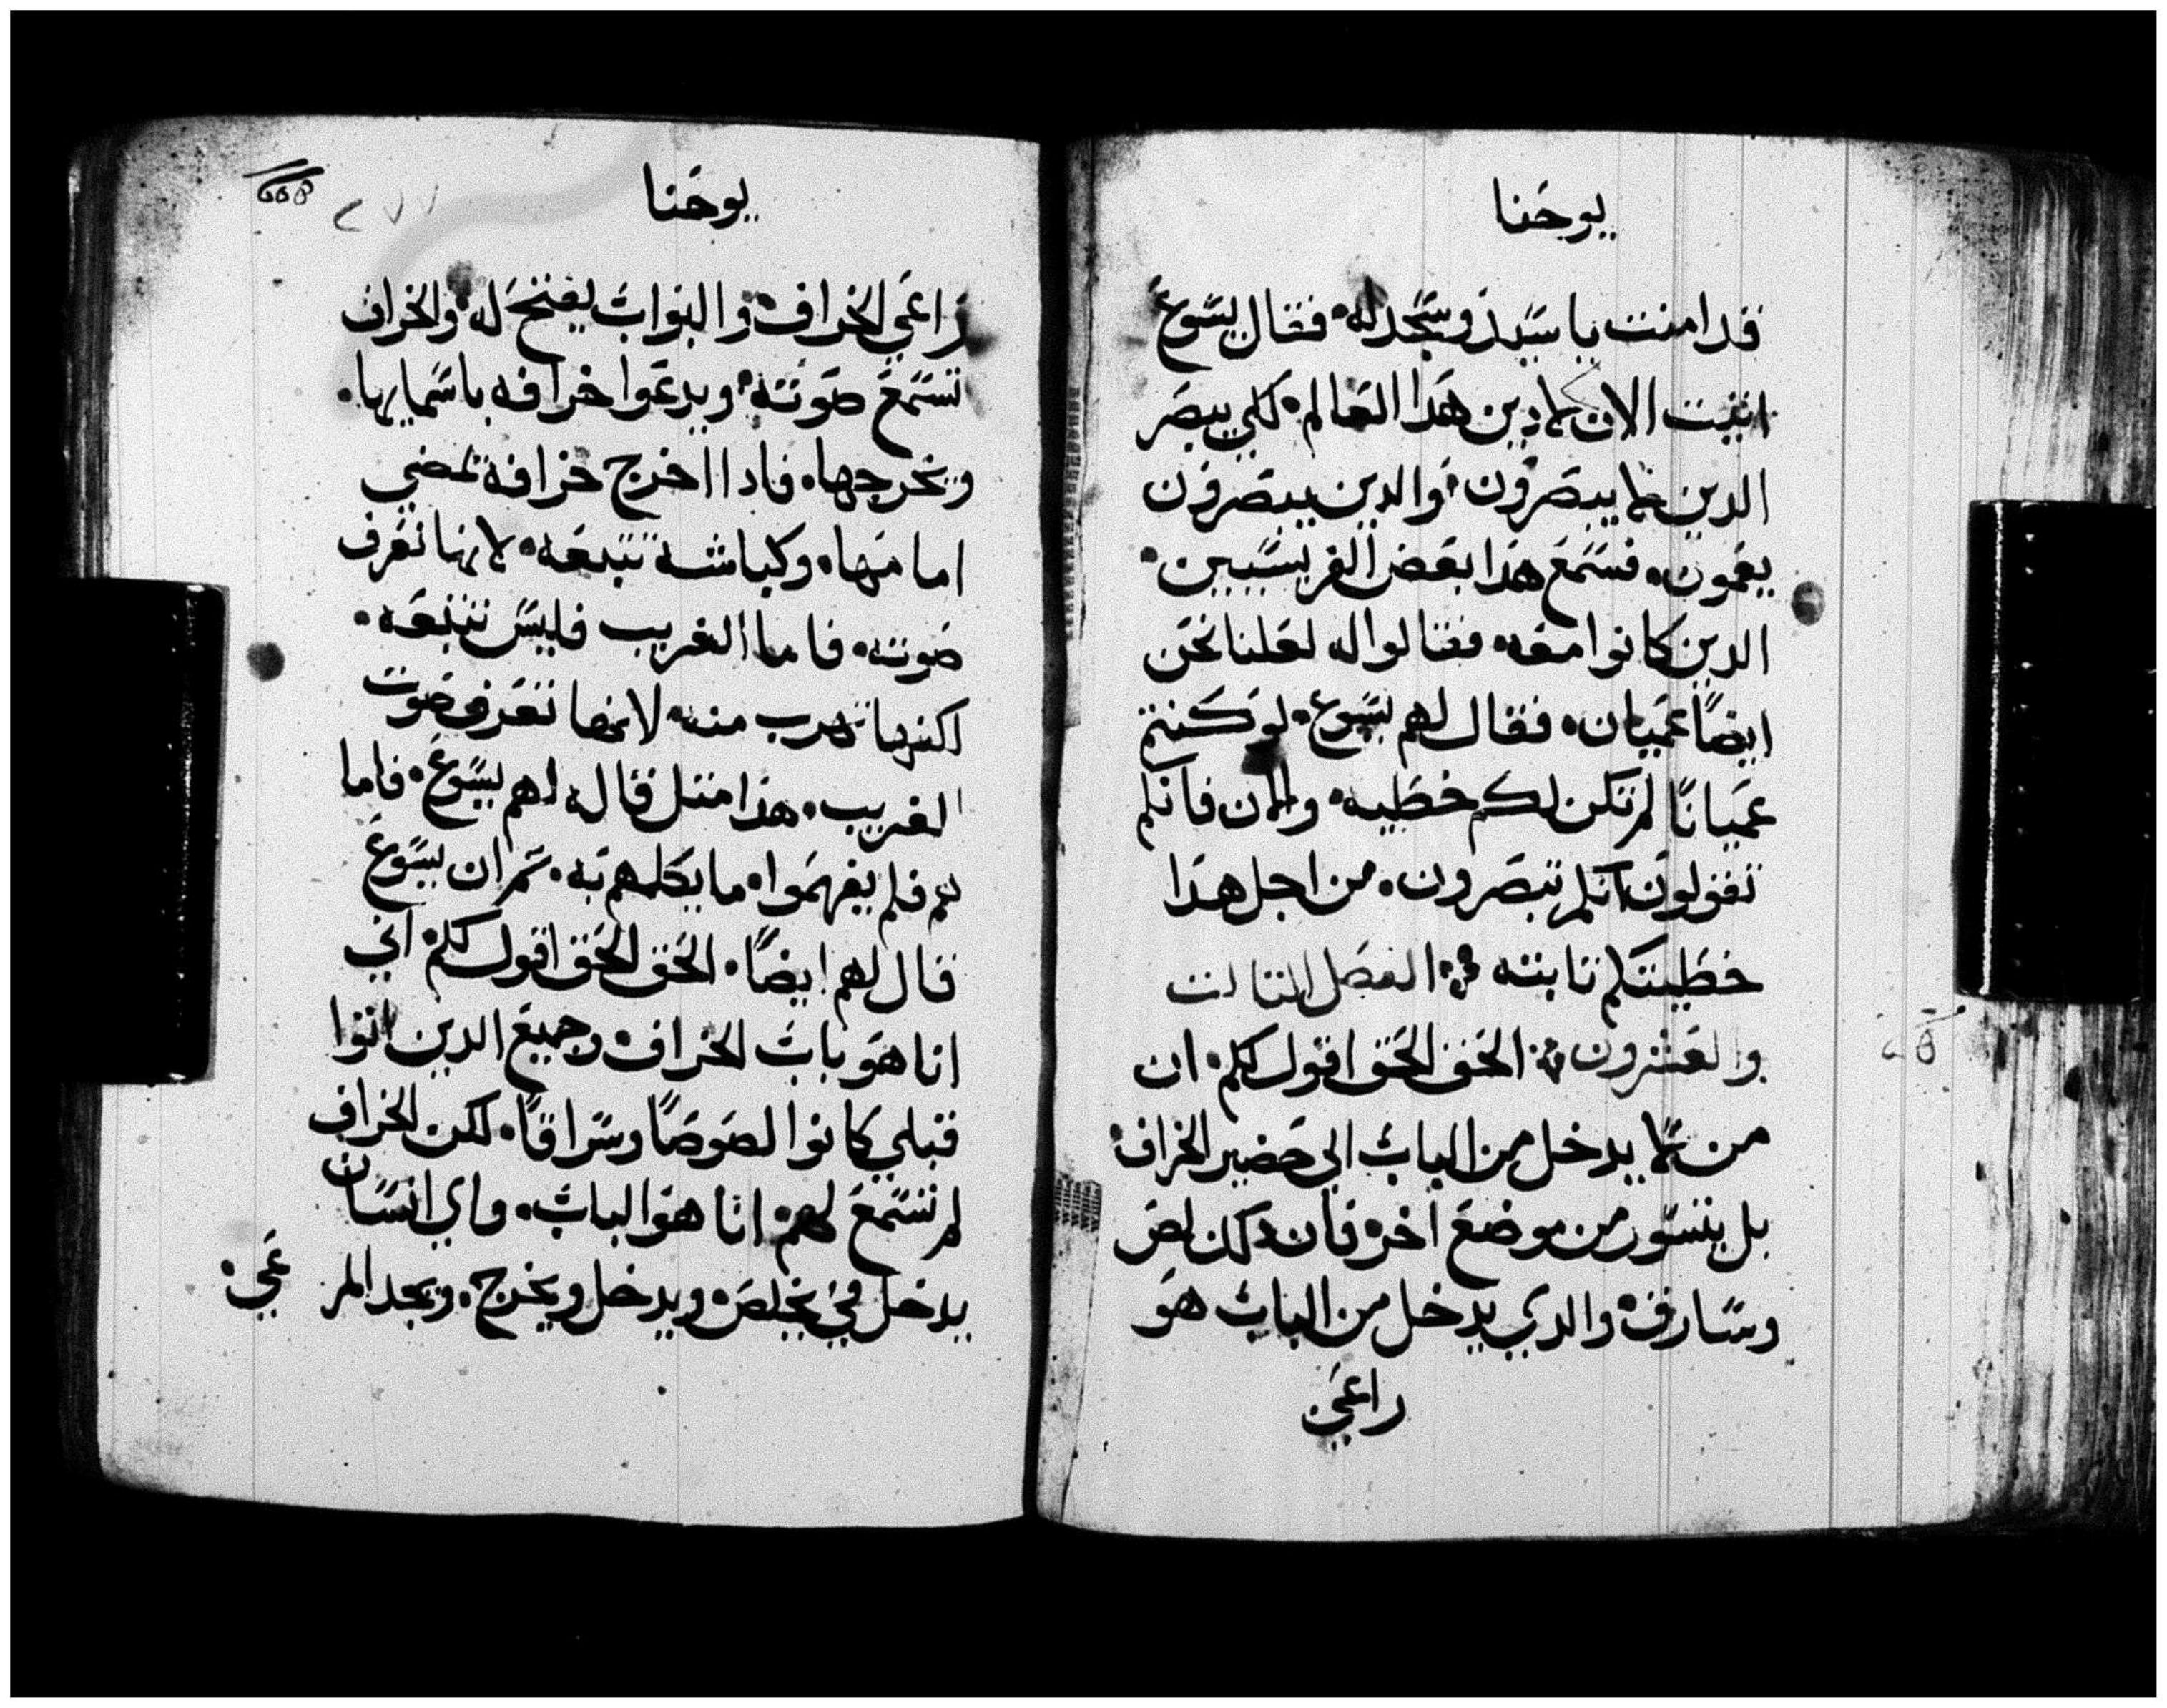 يوحنا
قد امنت يا سيد وسجد له فقال يسوع
اتيت الان لادين هدا العالم لكي يبصر
الدين لا يبصرون والدين يبصرون
يعمون فسمع هدا بعض الفريسيين
الدين كانوا معه فقالوا له لعلنا نحن
ايضًا عميان فقال لهم يسوع لو كنتم
عميانًا لم تكن لكم خطيه والان فانكم
تقولون انكم تبصرون من اجل هدا
خطيتكم تابته الفصل التالت
والعشرون الحق الحق اقول لكم ان
من لا يدخل من الباب الي حضير الخراف
بل يتسور من موضع اخر فان دلك لص
وسارق والدي يدخل من الباب هو
راعي
يوحنا
٢٧٧
راعي الخراف والبواب يفتح له والخراف
تسمع صوته ويدعوا خرافه باسمايها
ويخرجها فادا اخرج خرافه يمضي
امامها وكباشه تتبعه لانها تعرف
صوته فاما الغريب فليس تتبعه
لكنها تهرب منه لانها تعرف صوت
الغريب هدا متل قاله لهم يسوع فاما
هم فلم يفهموا ما يكلمهم به تم ان يسوع
قال لهم ايضًا الحق الحق اقول لكم اني
انا هو باب الخراف وجميع الدين اتوا
قبلي كانوا لصوصًا وسراقًا لكن الخراف
لم تسمع لهم انا هو الباب واي انسان
يدخل في يخلص ويدخل ويخرج ويجد المر عي